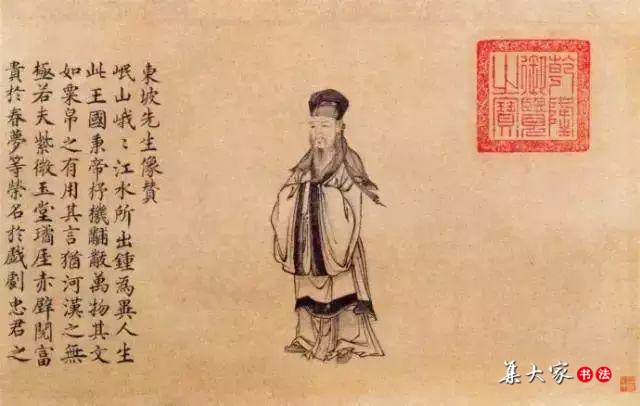 乾隆
御覽
之寶
東坡先生像贊
岷山峨〻江水所出鍾為異人生
此王國秉帝杼機黼黻萬物其文
如粟帛之有用其言猶河漢之無
極若夫紫微玉堂璚厓赤壁閱富
貴於春夢等榮名於戲劇忠君之
集大家书法